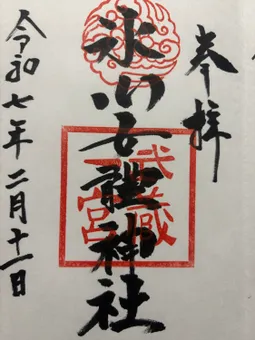 奉拝
氷川女體神社
武蔵
一宮
令和七年二月十一日